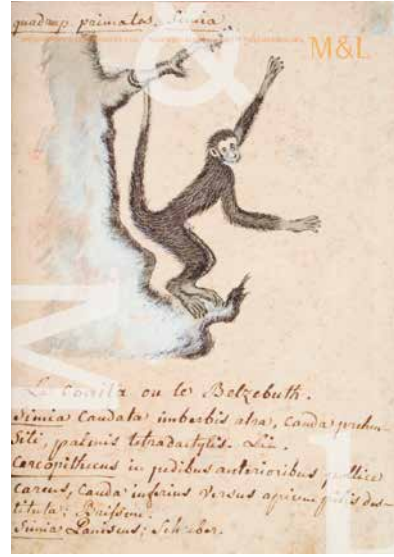 quadrup. primates. Simia
M&L
&
Le Coaita ou le Belzebuth.
Simia Caudata imberbis atra, Cauda prehen-
sili, palmis tetradactylis. Lin.
Cercopithecus in pedibus anterioribus pollice
careus, Cauda inferius versus apicem pilis des-
tituta; Brisson.
Simia Paniscus; Schreber.
M
L